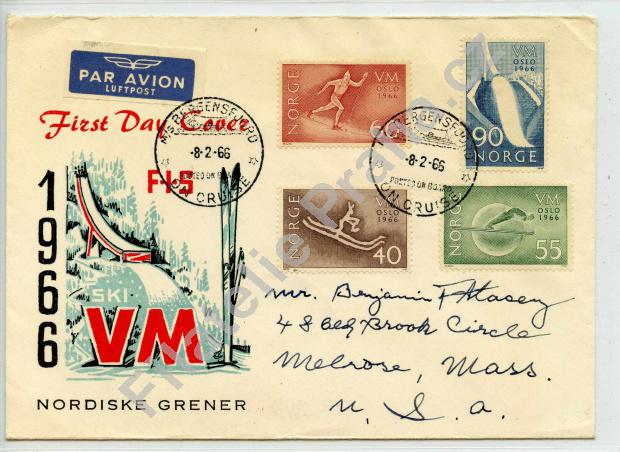 PAR AVION
LUFTPOST
First Day Cover
F·I·S
1966
SKI
VM
NORDISKE GRENER
NORGE VM
OSLO
1966
60
VM
OSLO
1966
90
NORGE
NORGE VM
OSLO
1966
40
NORGE VM
OSLO
1966
55
M/S BERGENSFJORD
-8-2-66
POSTED ON BOARD
ON CRUISE
M/S BERGENSFJORD
-8-2-66
POSTED ON BOARD
ON CRUISE
Mr. Benjamin F Mosey
48 Brook Circle
Melrose, Mass.
U. S. A.
Filatelie Praha.cz